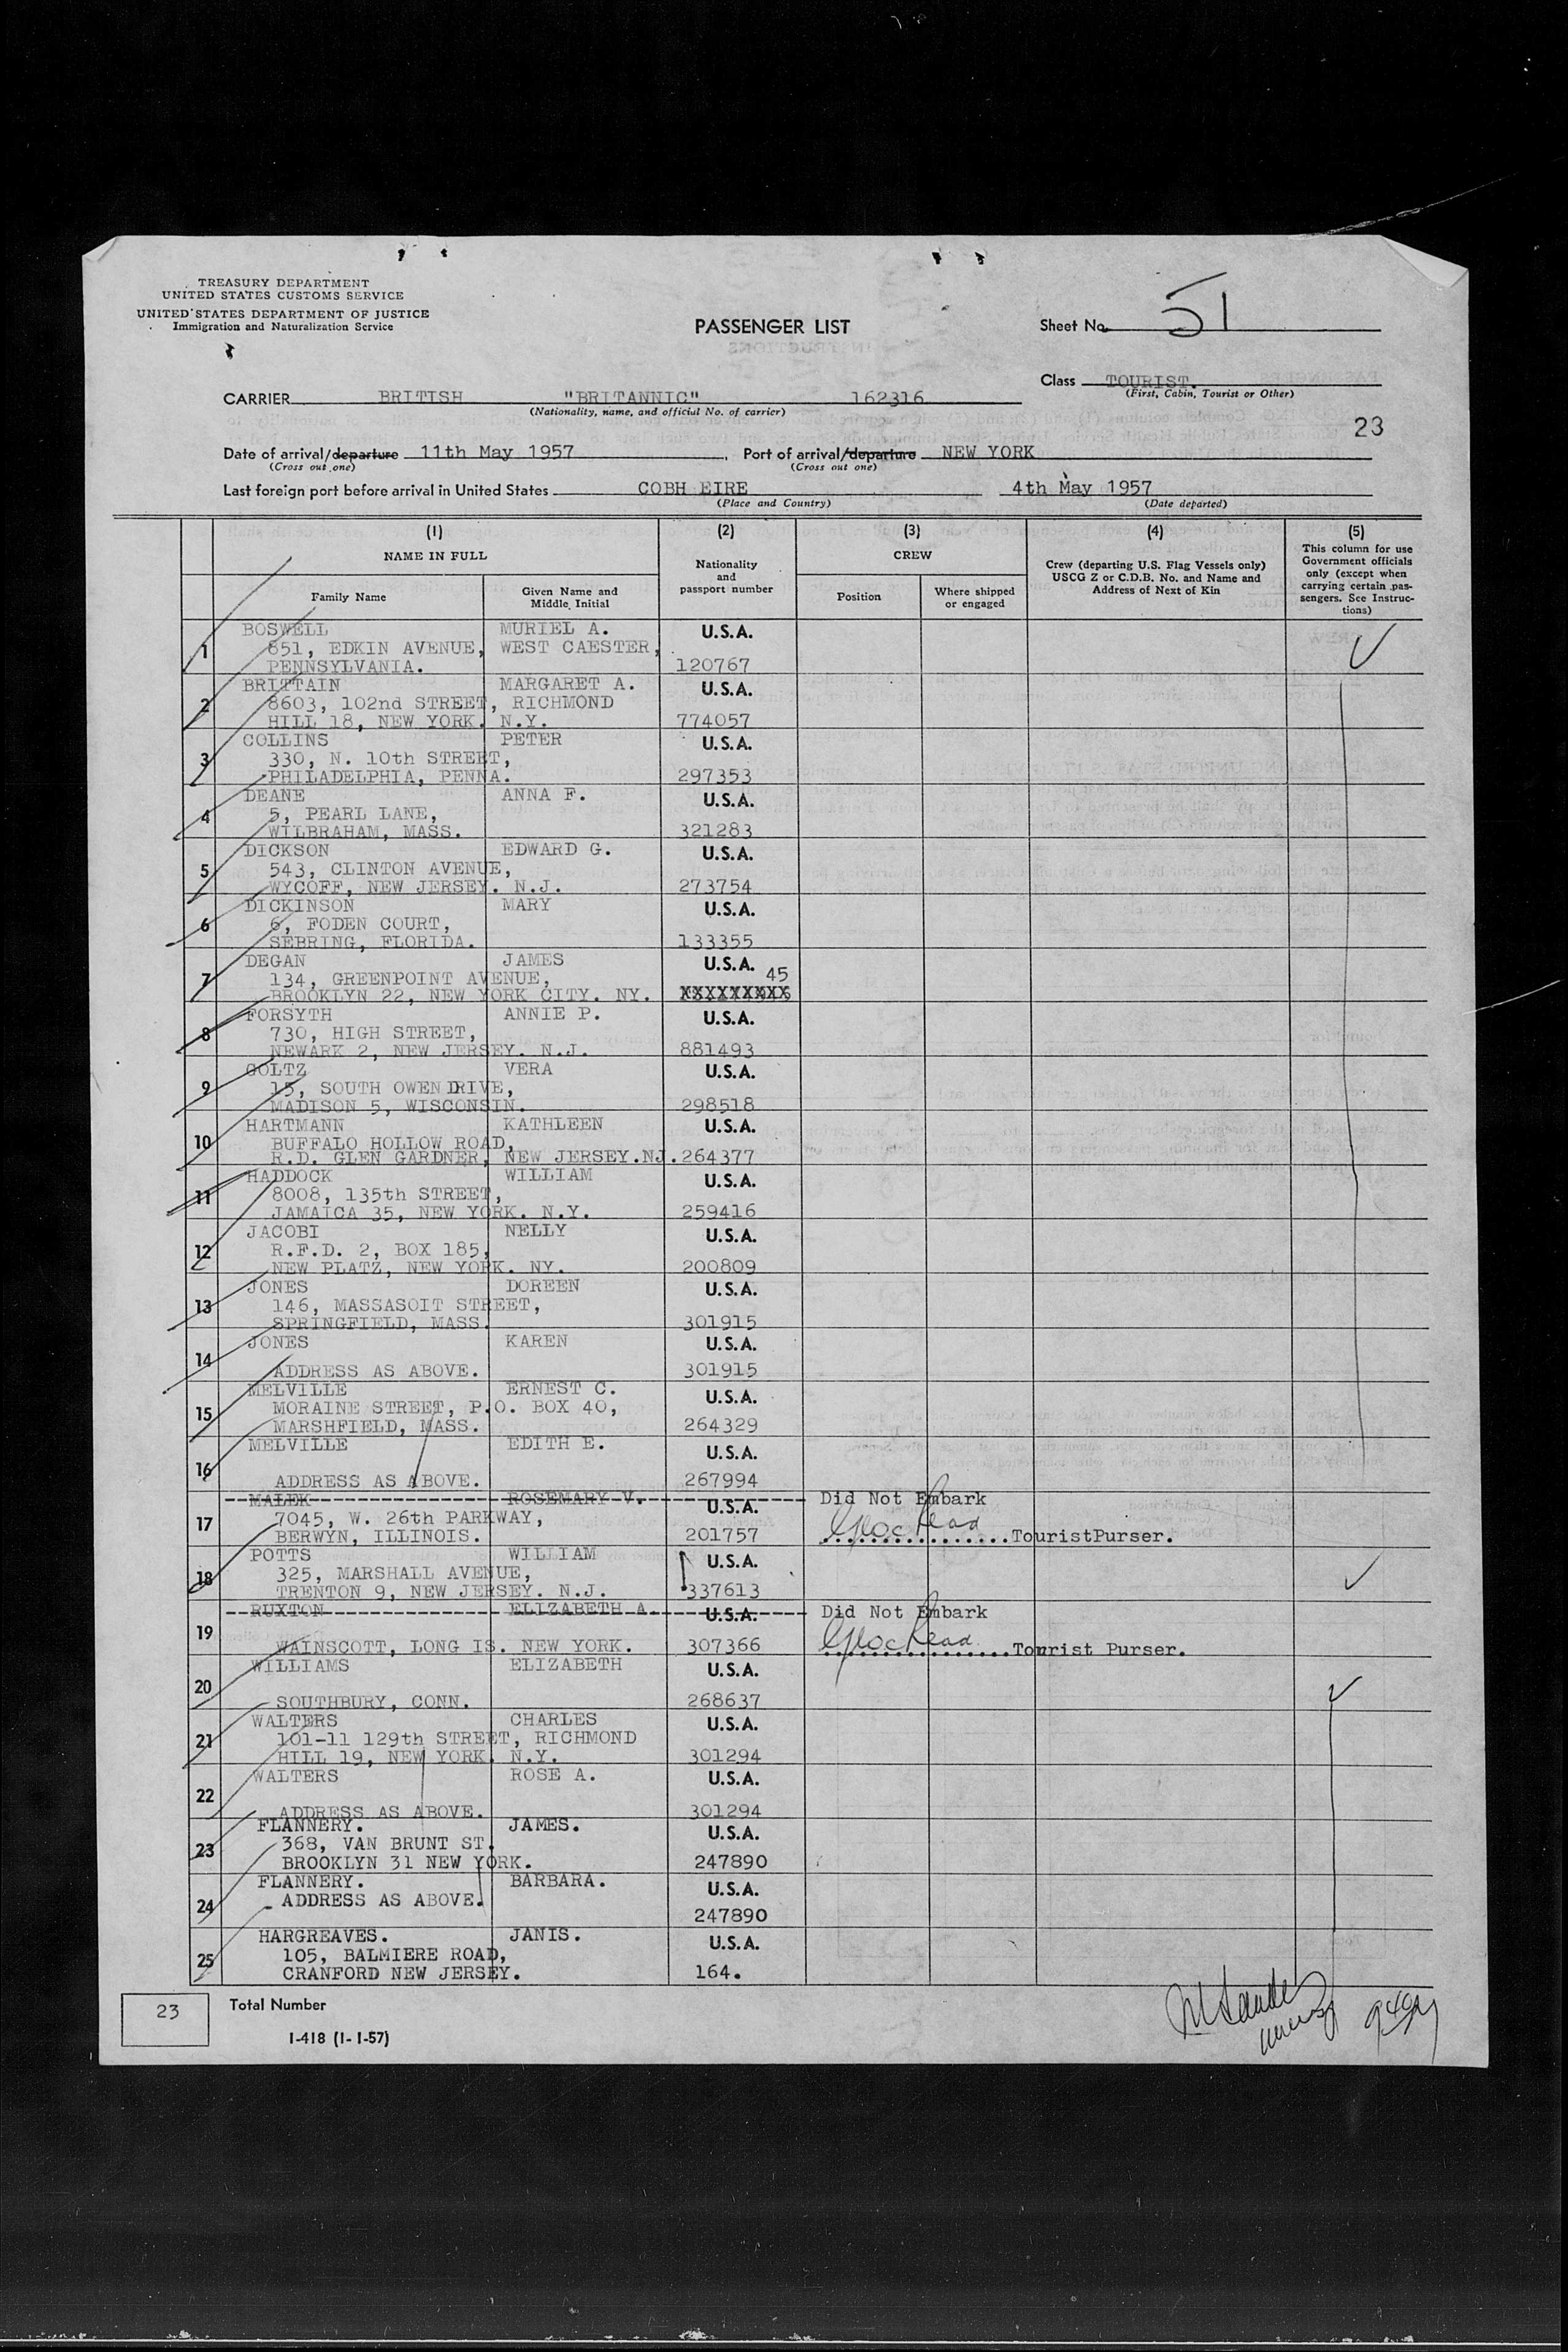 TREASURY DEPARTMENT
UNITED STATES CUSTOMS SERVICE
UNITED STATES DEPARTMENT OF JUSTICE
Immigration and Naturalization Service
PASSENGER LIST
Sheet No. 51
Class TOURIST.
(First, Cabin, Tourist or Other)
CARRIER BRITISH "BRITANNIC" 162316
(Nationality, name, and official No. of carrier)
23
Date of arrival/departure 11th May 1957, Port of arrival/departure NEW YORK
(Cross out one) (Cross out one)
Last foreign port before arrival in United States COBH EIRE 4th May 1957
(Place and Country) (Date departed)
(1) (2) (3) (4) (5)
NAME IN FULL
Nationality and passport number
CREW
Crew (departing U.S. Flag Vessels only) USCG Z or C.D.B. No. and Name and Address of Next of Kin
This column for use Government officials only (except when carrying certain passengers. See Instructions)
Family Name
Given Name and Middle Initial
Position
Where shipped or engaged
1 BOSWELL MURIEL A. U.S.A.
851, EDKIN AVENUE, WEST CAESTER,
PENNSYLVANIA. 120767
2 BRITTAIN MARGARET A. U.S.A.
8603, 102nd STREET, RICHMOND
HILL 18, NEW YORK. N.Y. 774057
3 COLLINS PETER U.S.A.
330, N. 10th STREET,
PHILADELPHIA, PENNA. 297353
4 DEANE ANNA F. U.S.A.
5, PEARL LANE,
WILBRAHAM, MASS. 321283
5 DICKSON EDWARD G. U.S.A.
543, CLINTON AVENUE,
WYCOFF, NEW JERSEY. N.J. 273754
6 DICKINSON MARY U.S.A.
6, FODEN COURT,
SEBRING, FLORIDA. 133355
7 DEGAN JAMES U.S.A.
134, GREENPOINT AVENUE, 45
BROOKLYN 22, NEW YORK CITY. NY. XXXXXXXXX
8 FORSYTH ANNIE P. U.S.A.
730, HIGH STREET,
NEWARK 2, NEW JERSEY. N.J. 881493
9 GOLTZ VERA U.S.A.
15, SOUTH OWEN DRIVE,
MADISON 5, WISCONSIN. 298518
10 HARTMANN KATHLEEN U.S.A.
BUFFALO HOLLOW ROAD,
R.D. GLEN GARDNER, NEW JERSEY.NJ. 264377
11 HADDOCK WILLIAM U.S.A.
8008, 135th STREET,
JAMAICA 35, NEW YORK. N.Y. 259416
12 JACOBI NELLY U.S.A.
R.F.D. 2, BOX 185,
NEW PLATZ, NEW YORK. NY. 200809
13 JONES DOREEN U.S.A.
146, MASSASOIT STREET,
SPRINGFIELD, MASS. 301915
14 JONES KAREN U.S.A.
ADDRESS AS ABOVE. 301915
15 MELVILLE ERNEST C. U.S.A.
MORAINE STREET, P.O. BOX 40,
MARSHFIELD, MASS. 264329
16 MELVILLE EDITH E. U.S.A.
ADDRESS AS ABOVE. 267994
17 MALEK ROSEMARY V. U.S.A. Did Not Embark
7045, W. 26th PARKWAY,
BERWYN, ILLINOIS. 201757 ................TouristPurser.
18 POTTS WILLIAM U.S.A.
325, MARSHALL AVENUE,
TRENTON 9, NEW JERSEY. N.J. 337613
19 RUXTON ELIZABETH A. U.S.A. Did Not Embark
WAINSCOTT, LONG IS. NEW YORK. 307366 ................Tourist Purser.
20 WILLIAMS ELIZABETH U.S.A.
SOUTHBURY, CONN. 268637
21 WALTERS CHARLES U.S.A.
101-11 129th STREET, RICHMOND
HILL 19, NEW YORK. N.Y. 301294
22 WALTERS ROSE A. U.S.A.
ADDRESS AS ABOVE. 301294
23 FLANNERY. JAMES. U.S.A.
368, VAN BRUNT ST.
BROOKLYN 31 NEW YORK. 247890
24 FLANNERY. BARBARA. U.S.A.
ADDRESS AS ABOVE.
247890
25 HARGREAVES. JANIS. U.S.A.
105, BALMIERE ROAD,
CRANFORD NEW JERSEY. 164.
23 Total Number
I-418 (1-1-57)